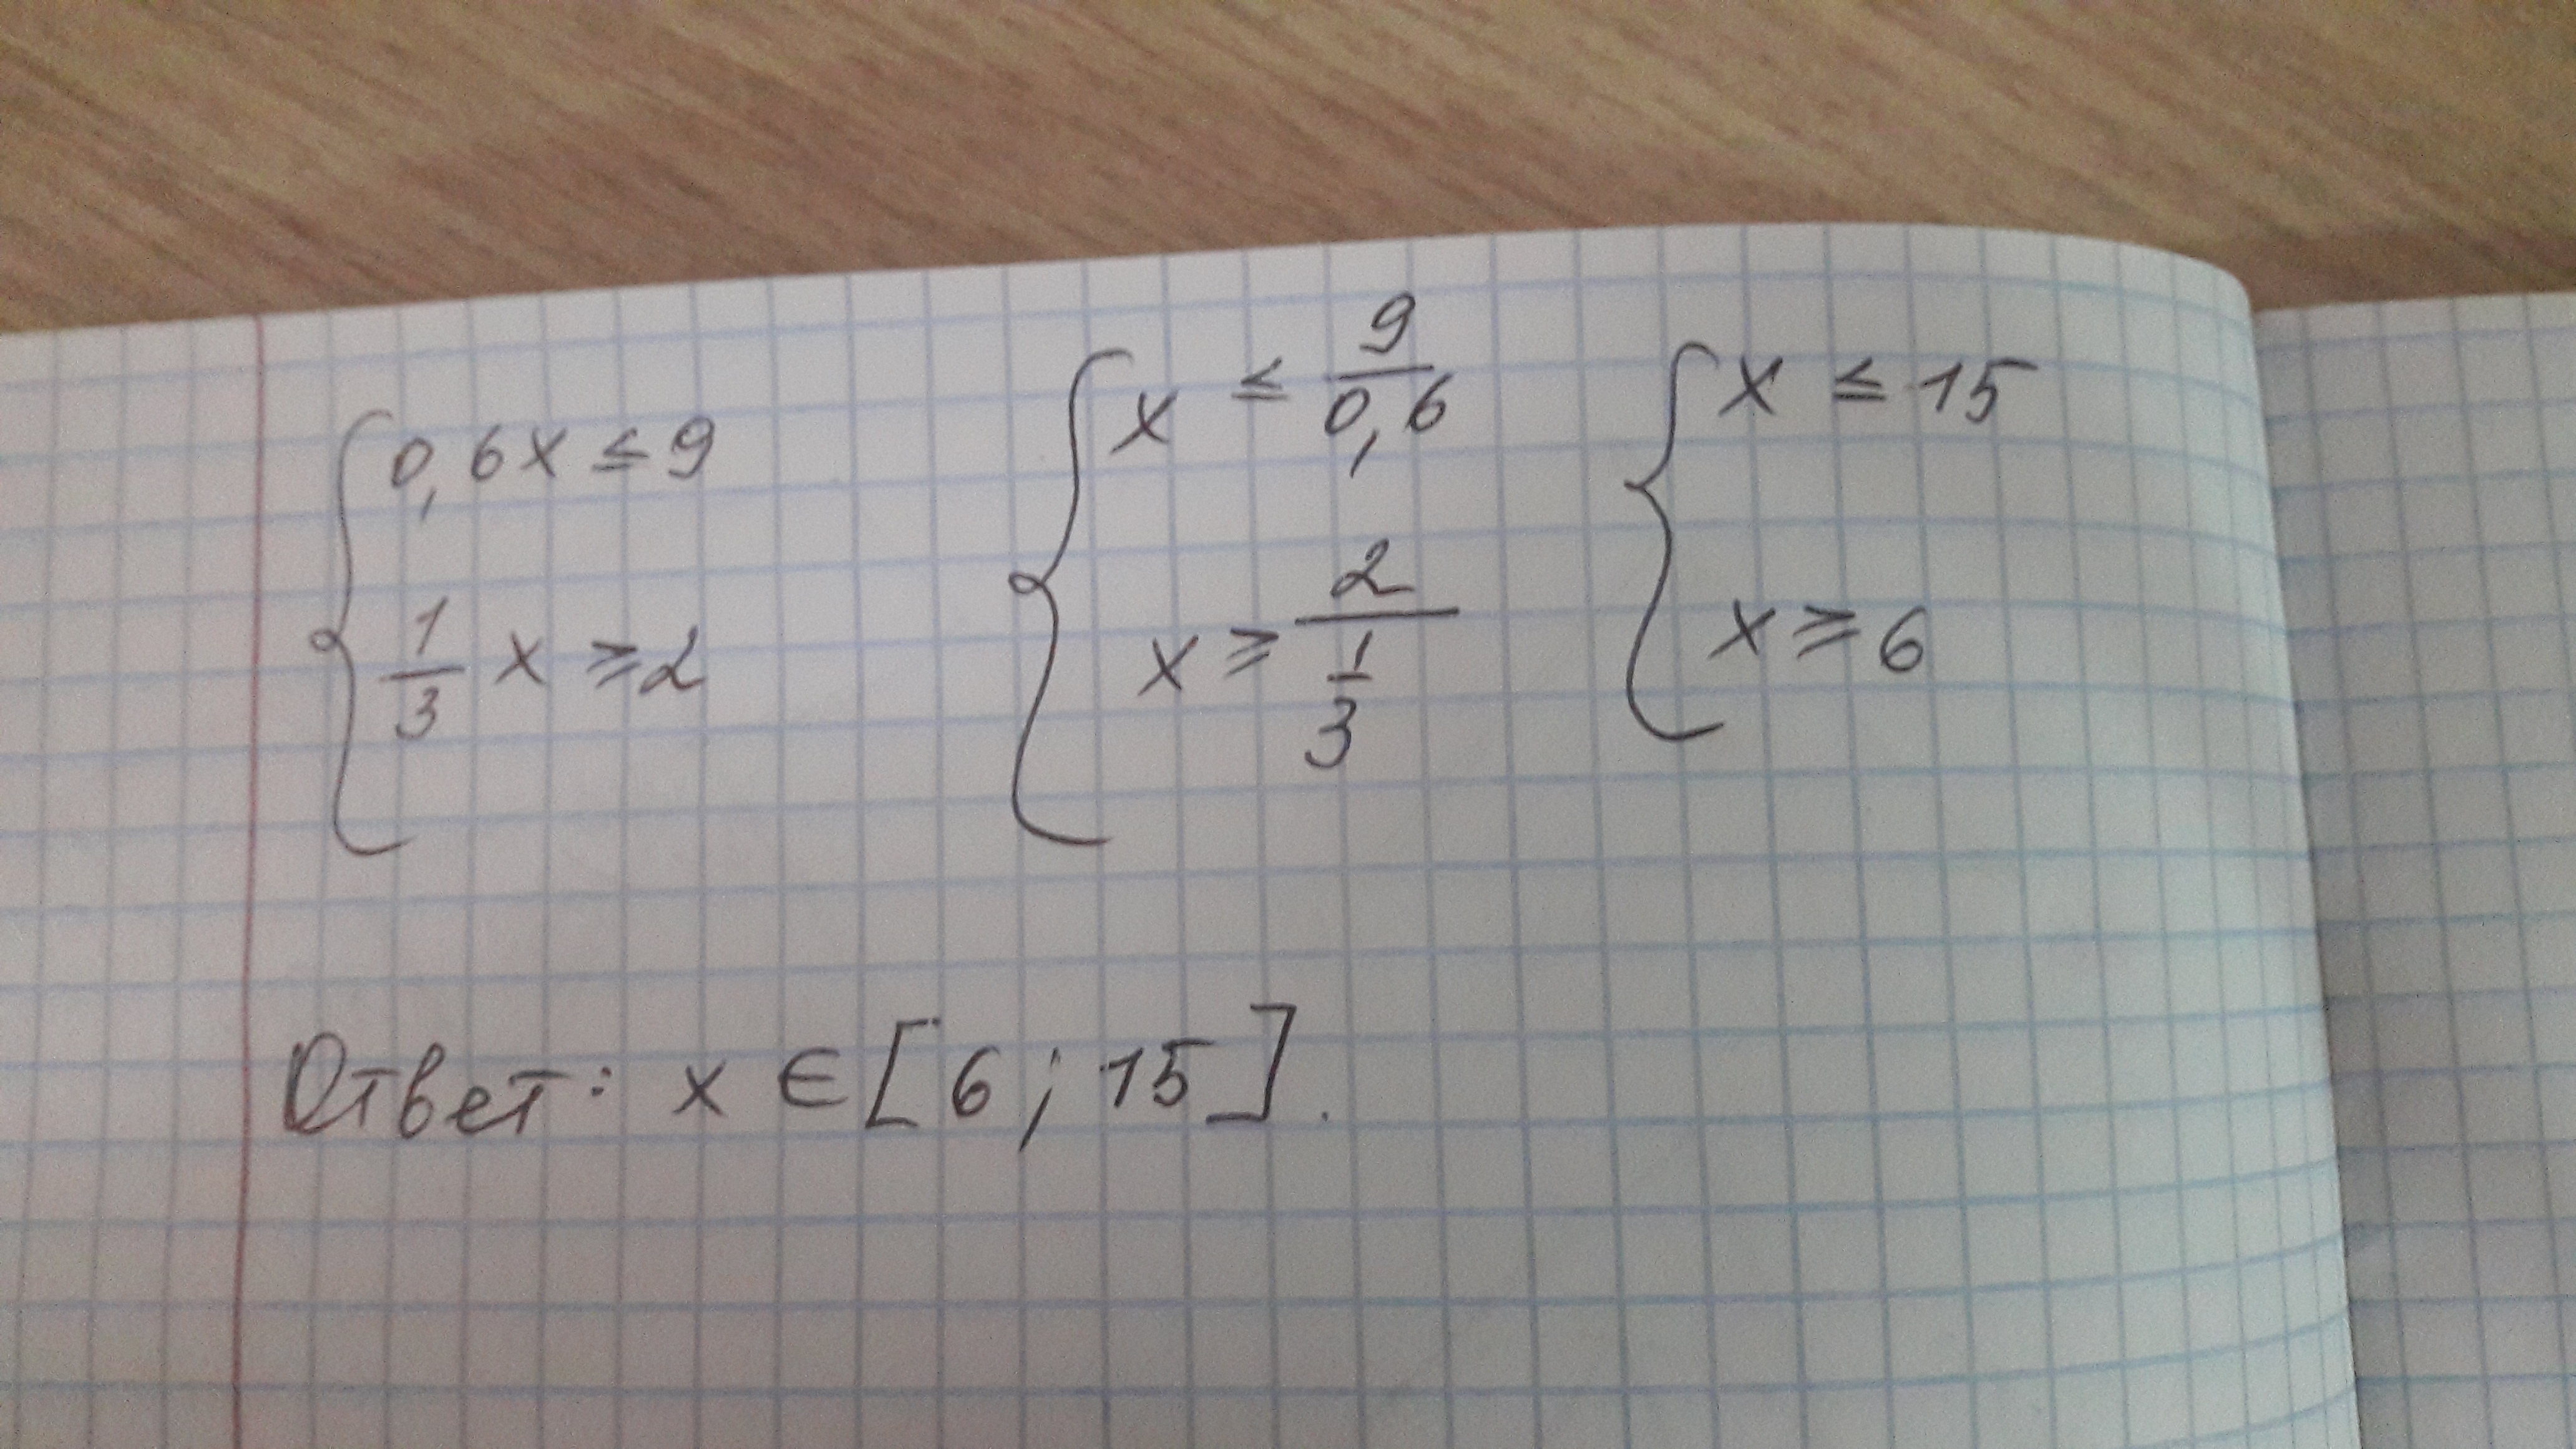 { 0,6x ≤ 9
1/3 x ≥ 2
{ x ≤ 9/0,6
x ≥ 2/(1/3)
{ x ≤ 15
x ≥ 6
Ответ: x ∈ [6; 15].